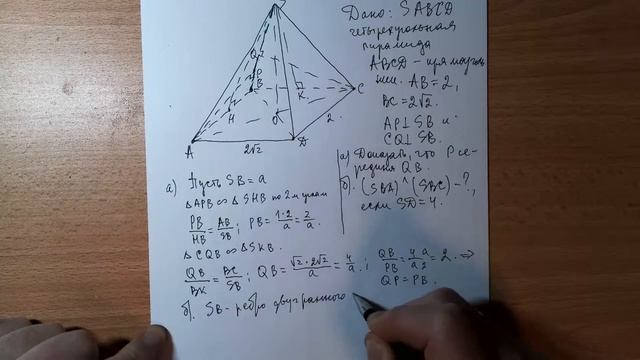 S
Q
P
B
H
K
O
C
A
D
2√2
2
Дано: SABCD
четырехугольная
пирамида
ABCD – прямоуголь
ник. AB=2,
BC=2√2.
AP⊥SB и
CQ⊥SB.
а) Доказать, что P се-
редина QB.
б). (SBA)^(SBC)-?,
если SD=4.
а) Пусть SB=a
△APB ∽ △SHB по 2м углам
PB/HB = AB/SB; PB = 1·2/a = 2/a.
△CQB ∽ △SKB.
QB/BK = BC/SB; QB = √2·2√2/a = 4/a.; QB/PB = 4/a · a/2 = 2. ⇒
QP=PB.
б). SB – ребро двугранного